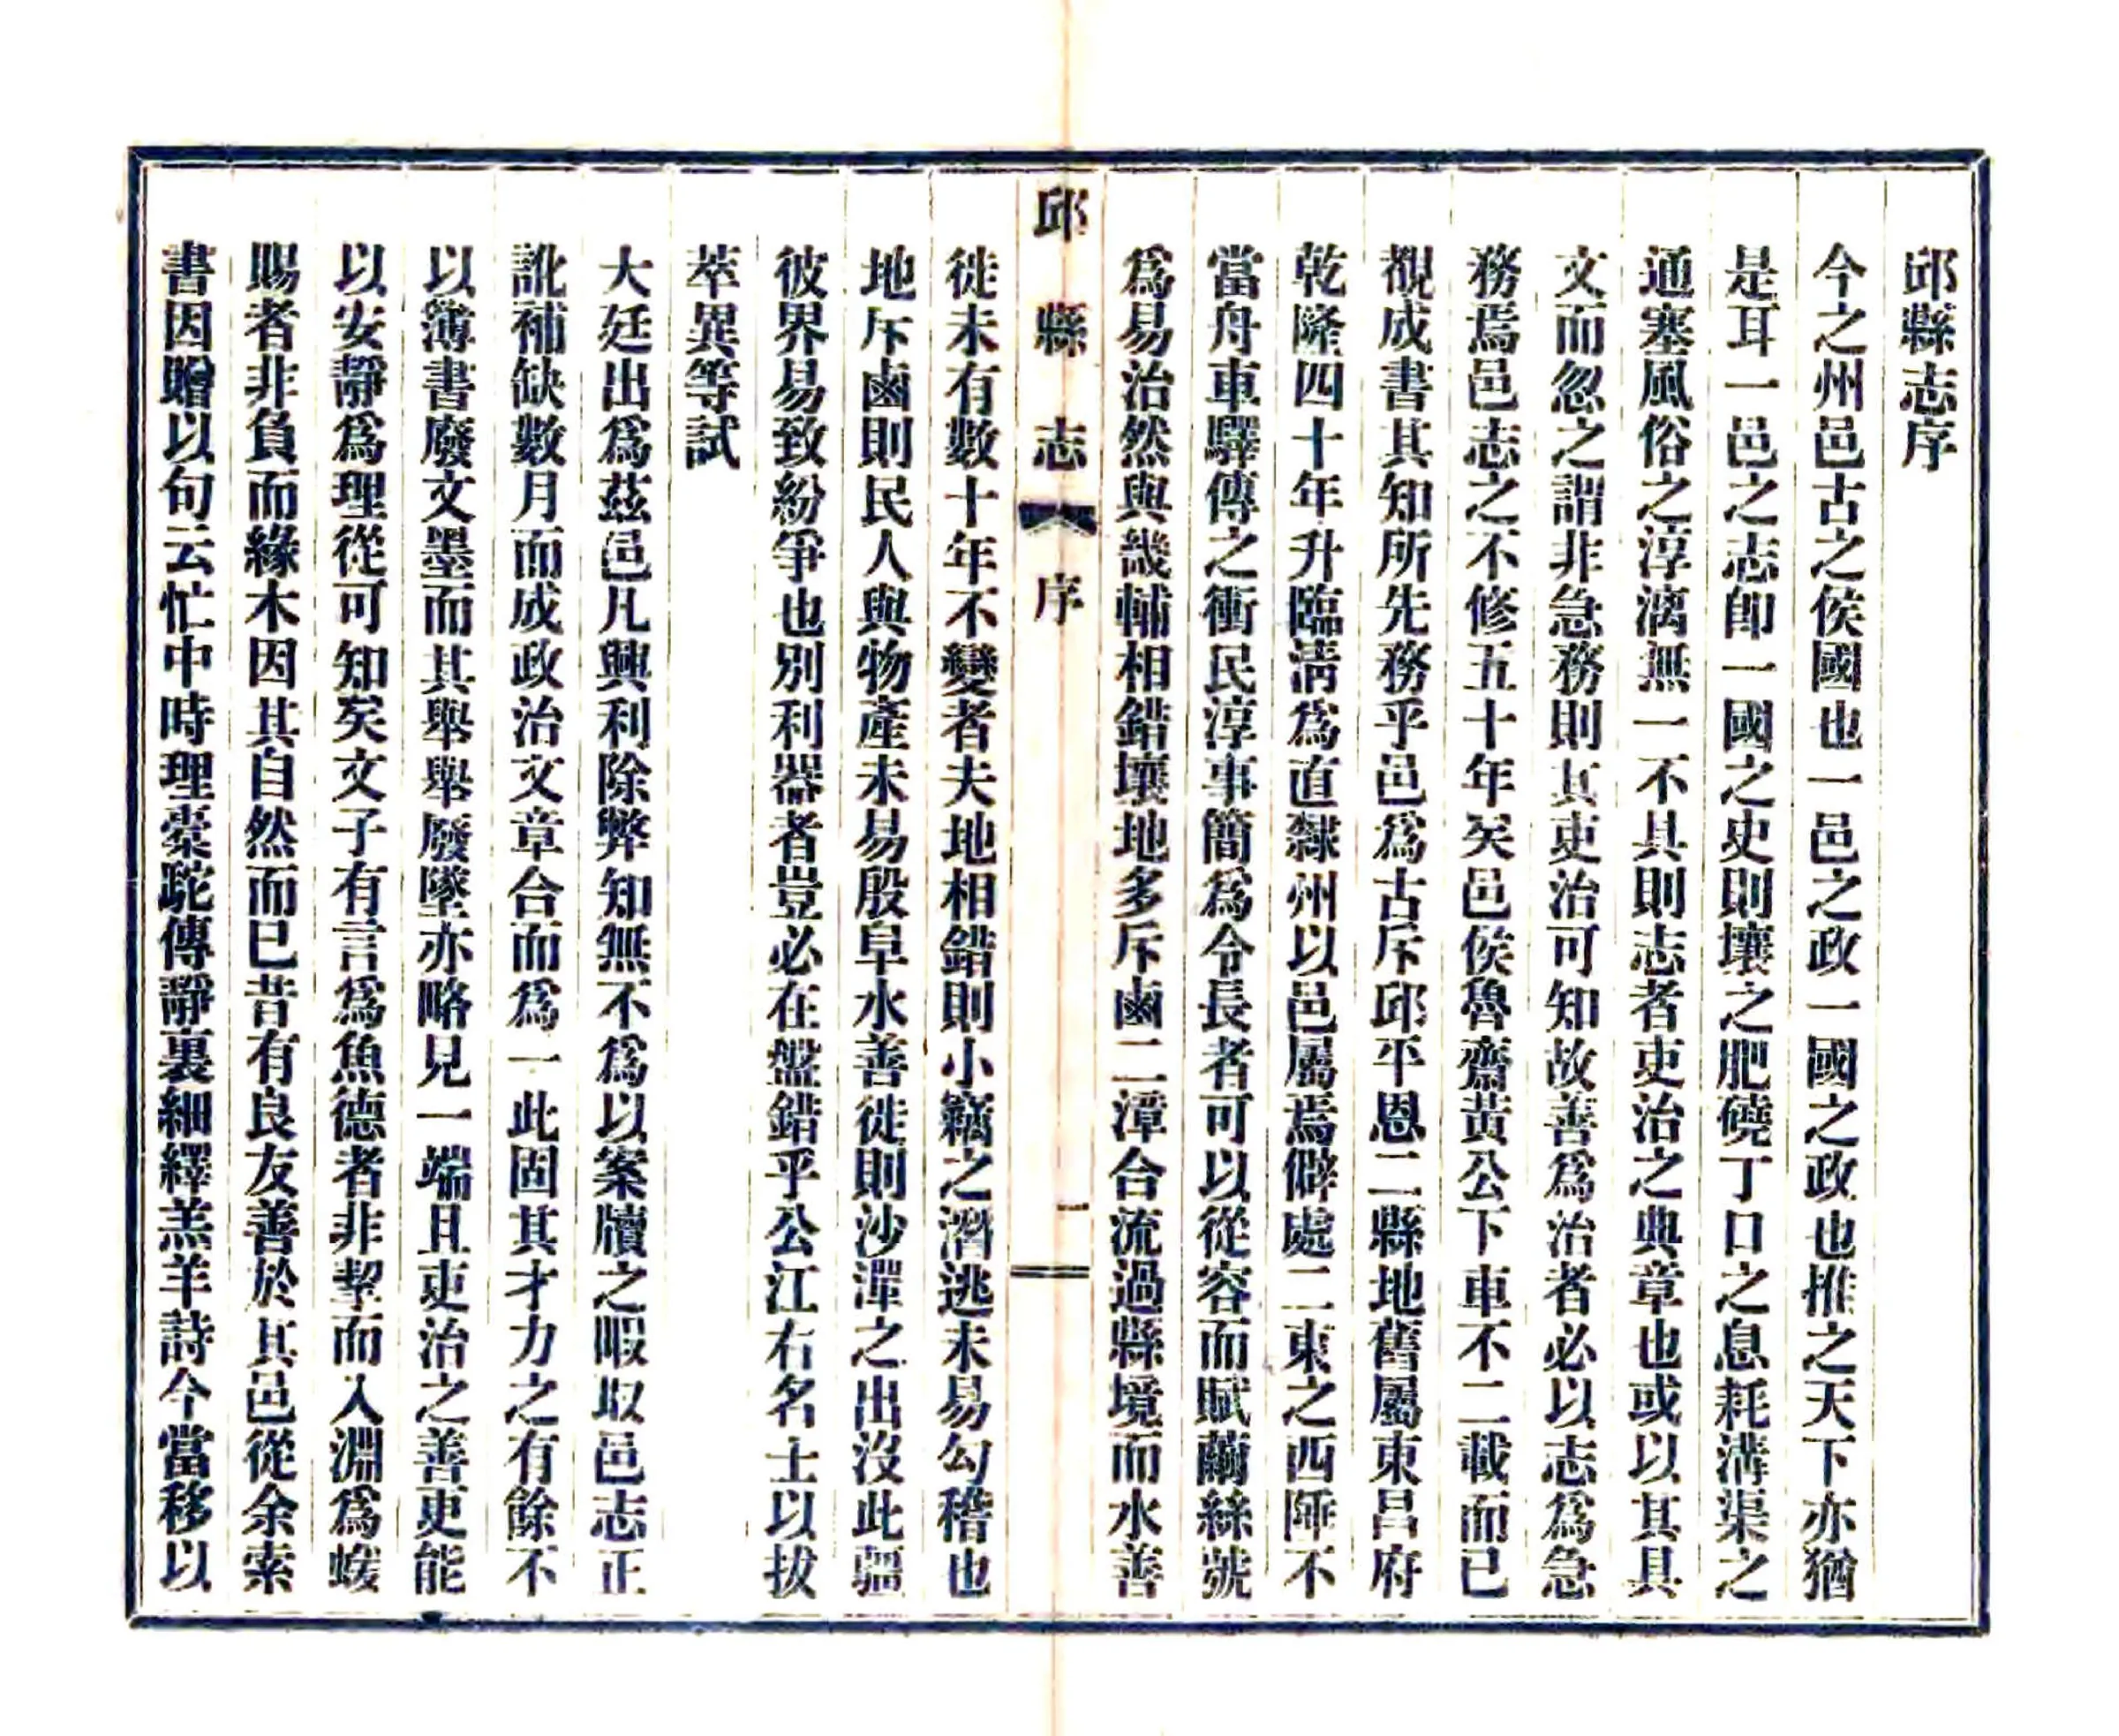 邱縣志序
今之州邑古之侯國也一邑之政一國之政也推之天下亦猶
是耳一邑之志卽一國之史則壤之肥磽丁口之息耗溝渠之
通塞風俗之淳漓無一不具則志者吏治之典章也或以其具
文而忽之謂非急務則其吏治可知故善爲治者必以志爲急
務焉邑志之不修五十年矣邑侯魯齋黃公下車不二載而已
覩成書其知所先務乎邑爲古斥邱平恩二縣地舊屬東昌府
乾隆四十年升臨淸爲直隸州以邑屬焉僻處二東之西陲不
當舟車驛傳之衝民淳事簡爲令長者可以從容而賦繭絲號
爲易治然與畿輔相錯壤地多斥鹵二漳合流過縣境而水善
徙未有數十年不變者夫地相錯則小竊之潛逃未易勾稽也
地斥鹵則民人與物產未易殷阜水善徙則沙潬之出沒此疆
彼界易致紛爭也別利器者豈必在盤錯乎公江右名士以拔
萃異等試
大廷出爲茲邑凡興利除弊知無不爲以案牘之暇取邑志正
訛補缺數月而成政治文章合而爲一此固其才力之有餘不
以簿書廢文墨而其舉舉廢墜亦略見一端且吏治之善更能
以安靜爲理從可知矣文子有言爲魚德者非挈而入淵爲蝯
賜者非負而緣木因其自然而已昔有良友善於其邑從余索
書因贈以句云忙中時理橐駝傳靜裏細繹羔羊詩今當移以
邱縣志
序
一